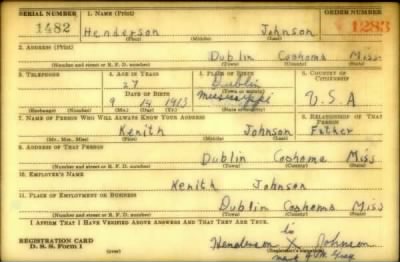 SERIAL NUMBER 1. NAME (Print) ORDER NUMBER
1482 Henderson Johnson 1283
(First) (Middle) (Last)
2. ADDRESS (Print)
Dublin Coahoma Miss
(Number and street or R. F. D. number) (Town) (County) (State)
3. TELEPHONE 4. AGE IN YEARS 5. PLACE OF BIRTH 6. COUNTRY OF CITIZENSHIP
27 Dublin
DATE OF BIRTH (Town or county)
9 14 1913 Mississippi U.S.A
(Exchange) (Number) (Mo.) (Day) (Yr.) (State or country)
7. NAME OF PERSON WHO WILL ALWAYS KNOW YOUR ADDRESS 8. RELATIONSHIP OF THAT PERSON
Kenith Johnson Father
(Mr., Mrs., Miss) (First) (Middle) (Last)
9. ADDRESS OF THAT PERSON
Dublin Coahoma Miss
(Number and street or R. F. D. number) (Town) (County) (State)
10. EMPLOYER'S NAME
Kenith Johnson
11. PLACE OF EMPLOYMENT OR BUSINESS
Dublin Coahoma Miss
(Number and street or R. F. D. number) (Town) (County) (State)
I AFFIRM THAT I HAVE VERIFIED ABOVE ANSWERS AND THAT THEY ARE TRUE.
REGISTRATION CARD
D. S. S. Form 1
Henderson X Johnson